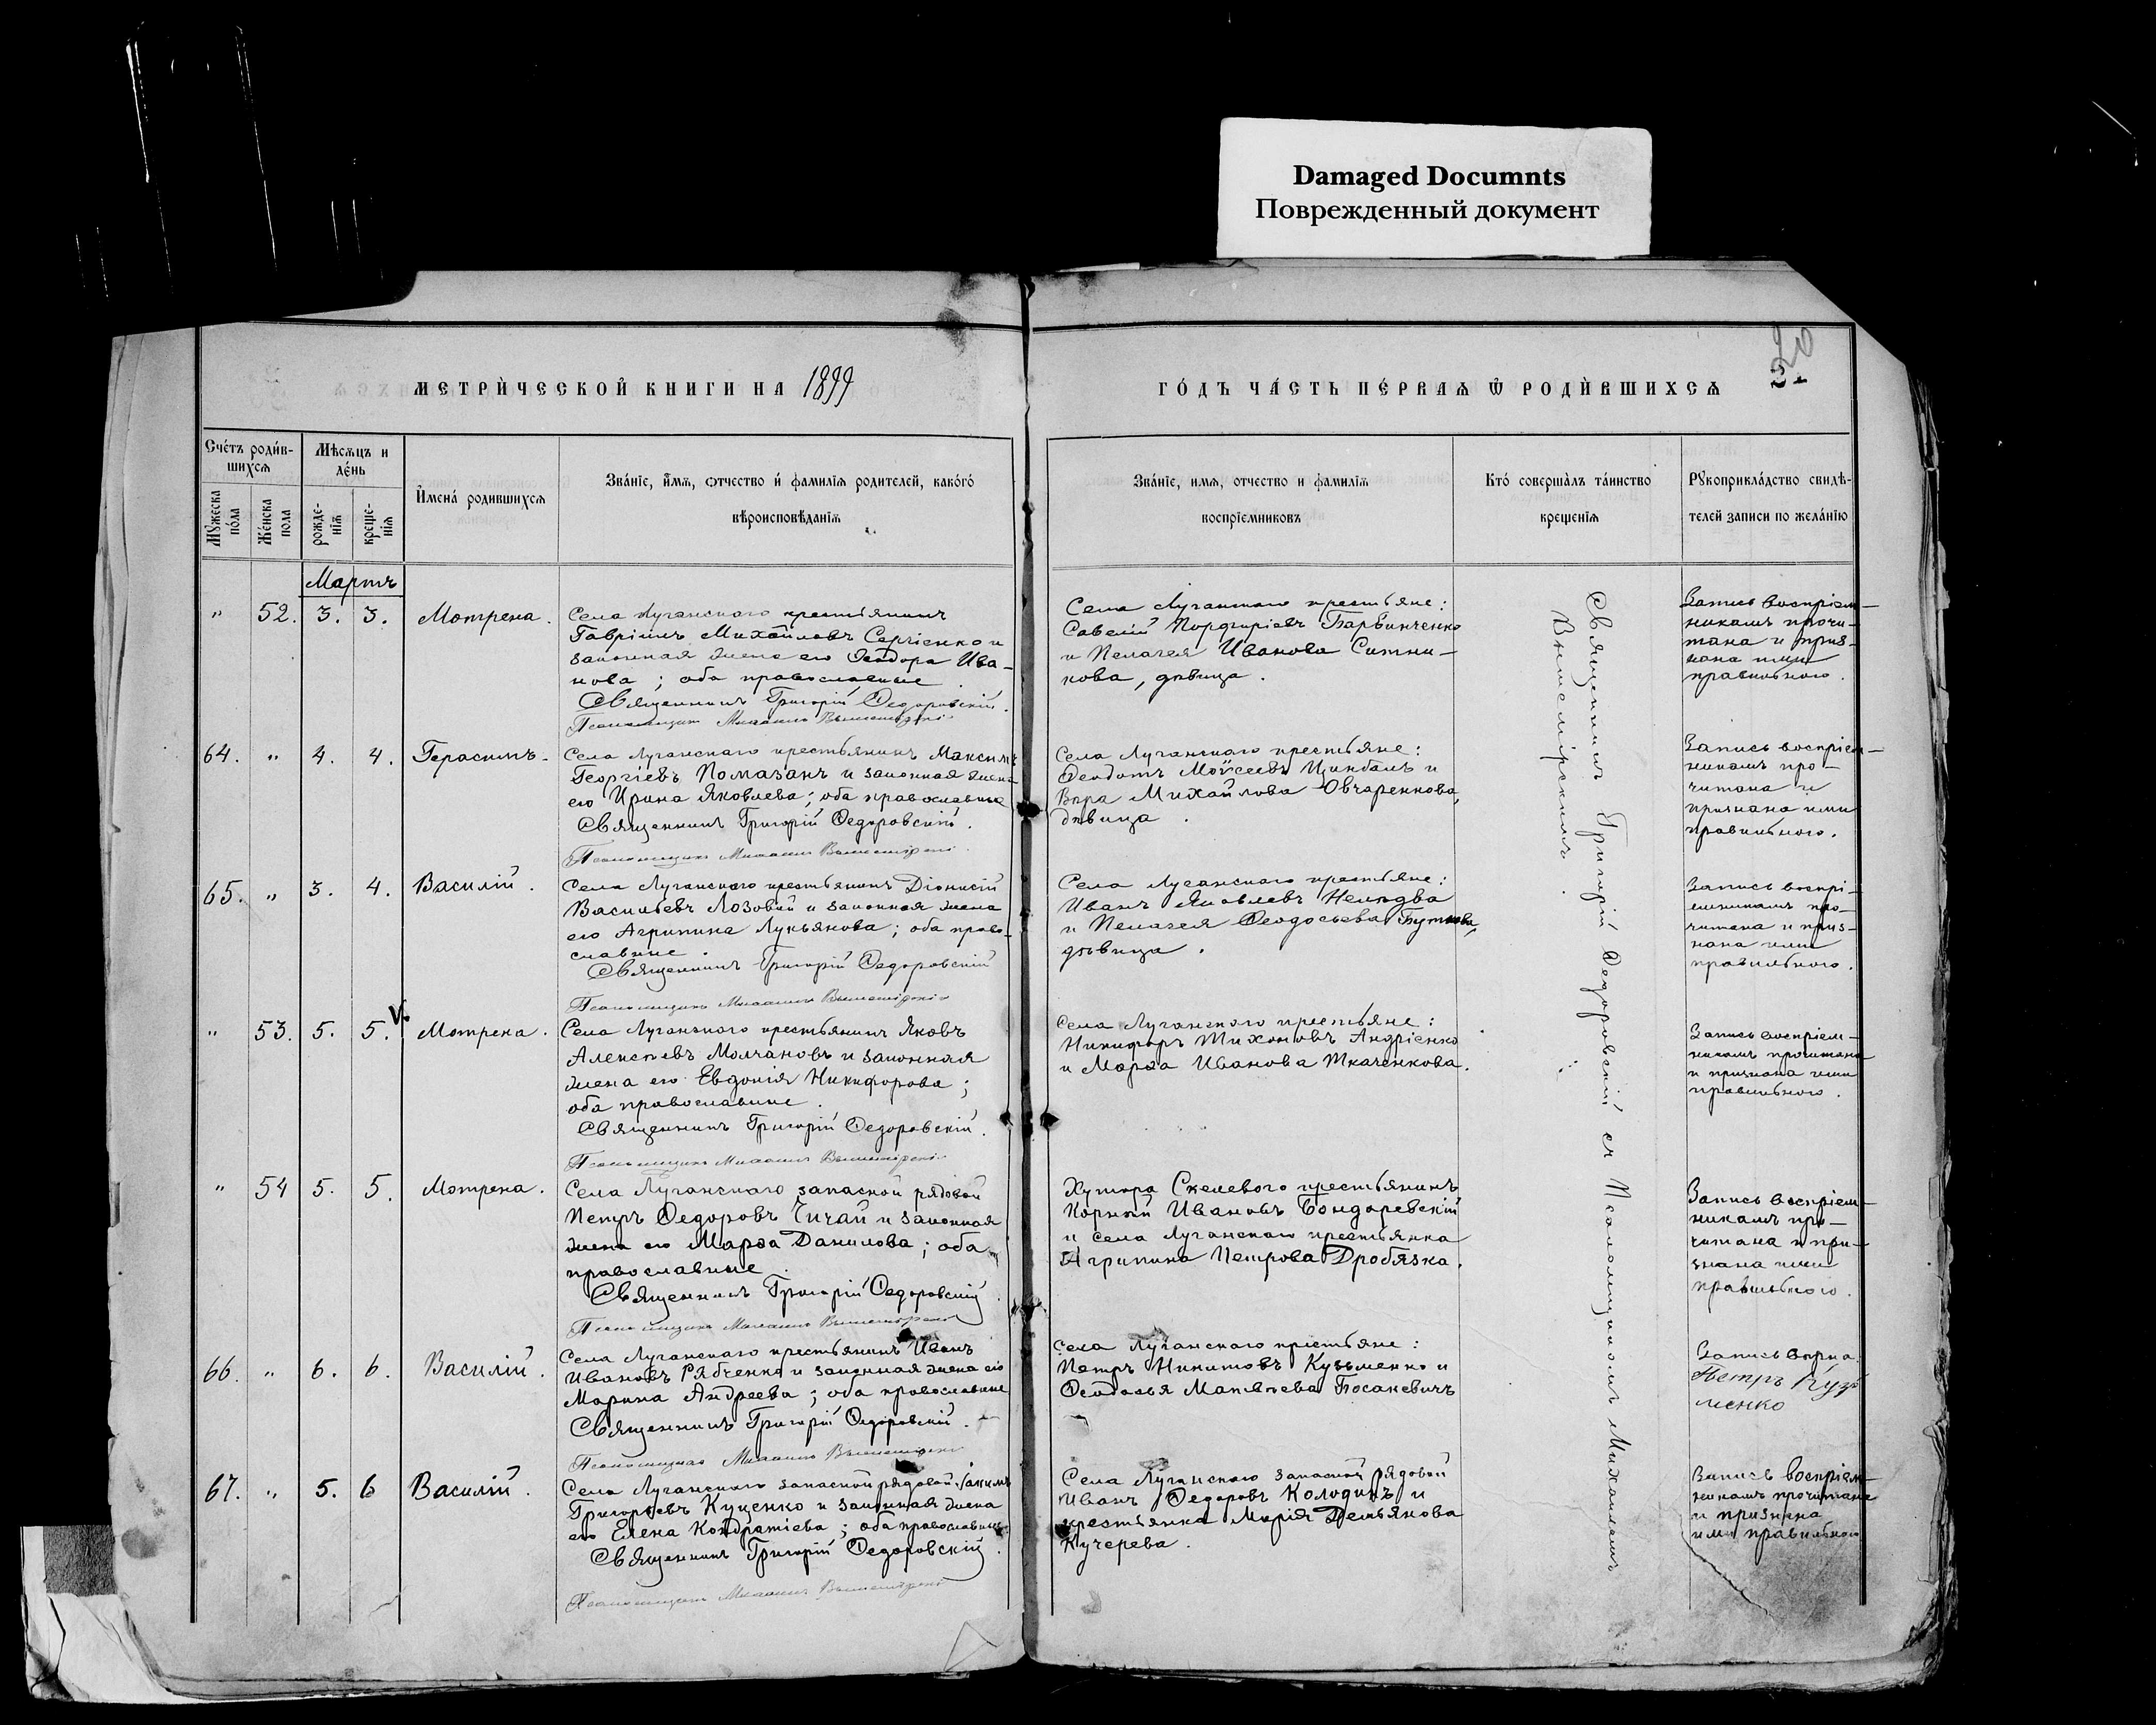 Damaged Documnts
Поврежденный документ
МЕТРИ́ЧЕСКОЙ КНИГИ НА 1899
ГО́ДЪ ЧА́СТЬ ПЕ́РВАѦ Ѿ РОДИ́ВШИХСѦ
20
Сче́тъ роди́в-
шихсѧ
Мꙋжеска
по́ла
Же́нска
пола
Мѣ́сѧцъ и
де́нь
рожде-
нїѧ
креще-
нїѧ
И҆мена́ родившихсѧ
Зва́нїе, и҆́мѧ, ѻтчество и҆ фамилїѧ родителей, како́гѡ
вѣроисповѣ́данїѧ
Зва́нїе, имѧ, отчество и фамилїѧ
воспрїемниковъ
Кто́ соверша́лъ та́инство
крещенїѧ
Рꙋкоприкла́дство свидѣ́-
телей записи по жела́нїю
Мартъ
" 52. 3. 3. Мотрена.
Села Луганского крестьянинъ
Гавріилъ Михайловъ Сергіенко и
законная жена его Ѳеодора Ива-
нова; оба православные
Священникъ Григорій Ѳедоровскій.
Псаломщикъ Михаилъ Вышемірскій
Села Луганского крестьяне:
Савелій Порфиріевъ Барвинченко
и Пелагея Иванова Ситни-
кова, дѣвица.
Запись воспріем-
никамъ прочи-
тана и приз-
нана ими
правильною.
64. " 4. 4. Герасимъ.
Села Луганскаго крестьянинъ Максимъ
Георгіевъ Помазанъ и законная жена
его Ирина Яковлева; оба православные
Священникъ Григорій Ѳедоровскій.
Псаломщикъ Михаилъ Вышемірскій
Села Луганского крестьяне:
Ѳеодотъ Моѵсеевъ Цимбалъ и
Вѣра Михайлова Овчаренкова,
дѣвица.
Запись воспріем-
никамъ про-
читана и
признана ими
правильною.
65. " 3. 4. Василій.
Села Луганскаго крестьянинъ Діонисій
Васильевъ Лозовой и законная жена
его Агрипина Лукьянова; оба право-
славные.
Священникъ Григорій Ѳедоровскій
Псаломщикъ Михаилъ Вышемірскій
Села Луганского крестьяне:
Иванъ Яковлевъ
и Пелагея Ѳеодосьева
дѣвица.
Запись воспрі-
емникамъ про-
читана и приз-
нана ими
правильною.
" 53. 5. 5. Мотрена.
Села Луганского крестьянинъ Яковъ
Алексѣевъ Молчановъ и законная
жена его Евдокія Никифорова;
оба православные.
Священникъ Григорій Ѳедоровскій.
Псаломщикъ Михаилъ Вышемірскій
Села Луганского крестьяне:
Никифоръ Тихоновъ Андріенко
и Марѳа Иванова Ткаченкова.
Запись воспріем-
никамъ прочитана
и признана ими
правильною.
" 54 5. 5. Мотрена.
Села Луганскаго запасной рядовой
Петръ Ѳедоровъ Чичай и законная
жена его Марѳа Данилова; оба
православные.
Священникъ Григорій Ѳедоровскій
Псаломщикъ Михаилъ Вышемірскій
Хутора Скелевого крестьянинъ
Корнѣй Ивановъ Бондаревскій
и села Луганского крестьянка
Агрипина Петрова Дробязка.
Запись воспріем-
никамъ про-
читана и при-
знана ими
правильною.
66. " 6. 6. Василій.
Села Луганскаго крестьянинъ Иванъ
Ивановъ Рябченко и законная жена его
Марина Андреева; оба православные
Священникъ Григорій Ѳедоровскій.
Псаломщикъ Михаилъ Вышемірскій
Села Луганского крестьяне:
Петръ Никитовъ Кузьменко и
Ѳеодосья Матвѣева Босакевичъ
Запись вѣрна
Петръ Куз
менко
67. " 5. 6 Василій.
Села Луганского запасной рядовой Іакимъ
Григорьевъ Куценко и законная жена
его Елена Кондратіева; оба православные.
Священникъ Григорій Ѳедоровскій.
Псаломщикъ Михаилъ Вышемірскій
Села Луганского запасной рядовой
Иванъ Ѳедоровъ Колодинъ и
крестьянка Марія Демьянова
Кучерева.
Запись воспріем-
никамъ прочитана
и признана
ими правильною
Священникъ Григорій Ѳедоровскій съ Псаломщикомъ Михаиломъ
Вышемірскимъ.